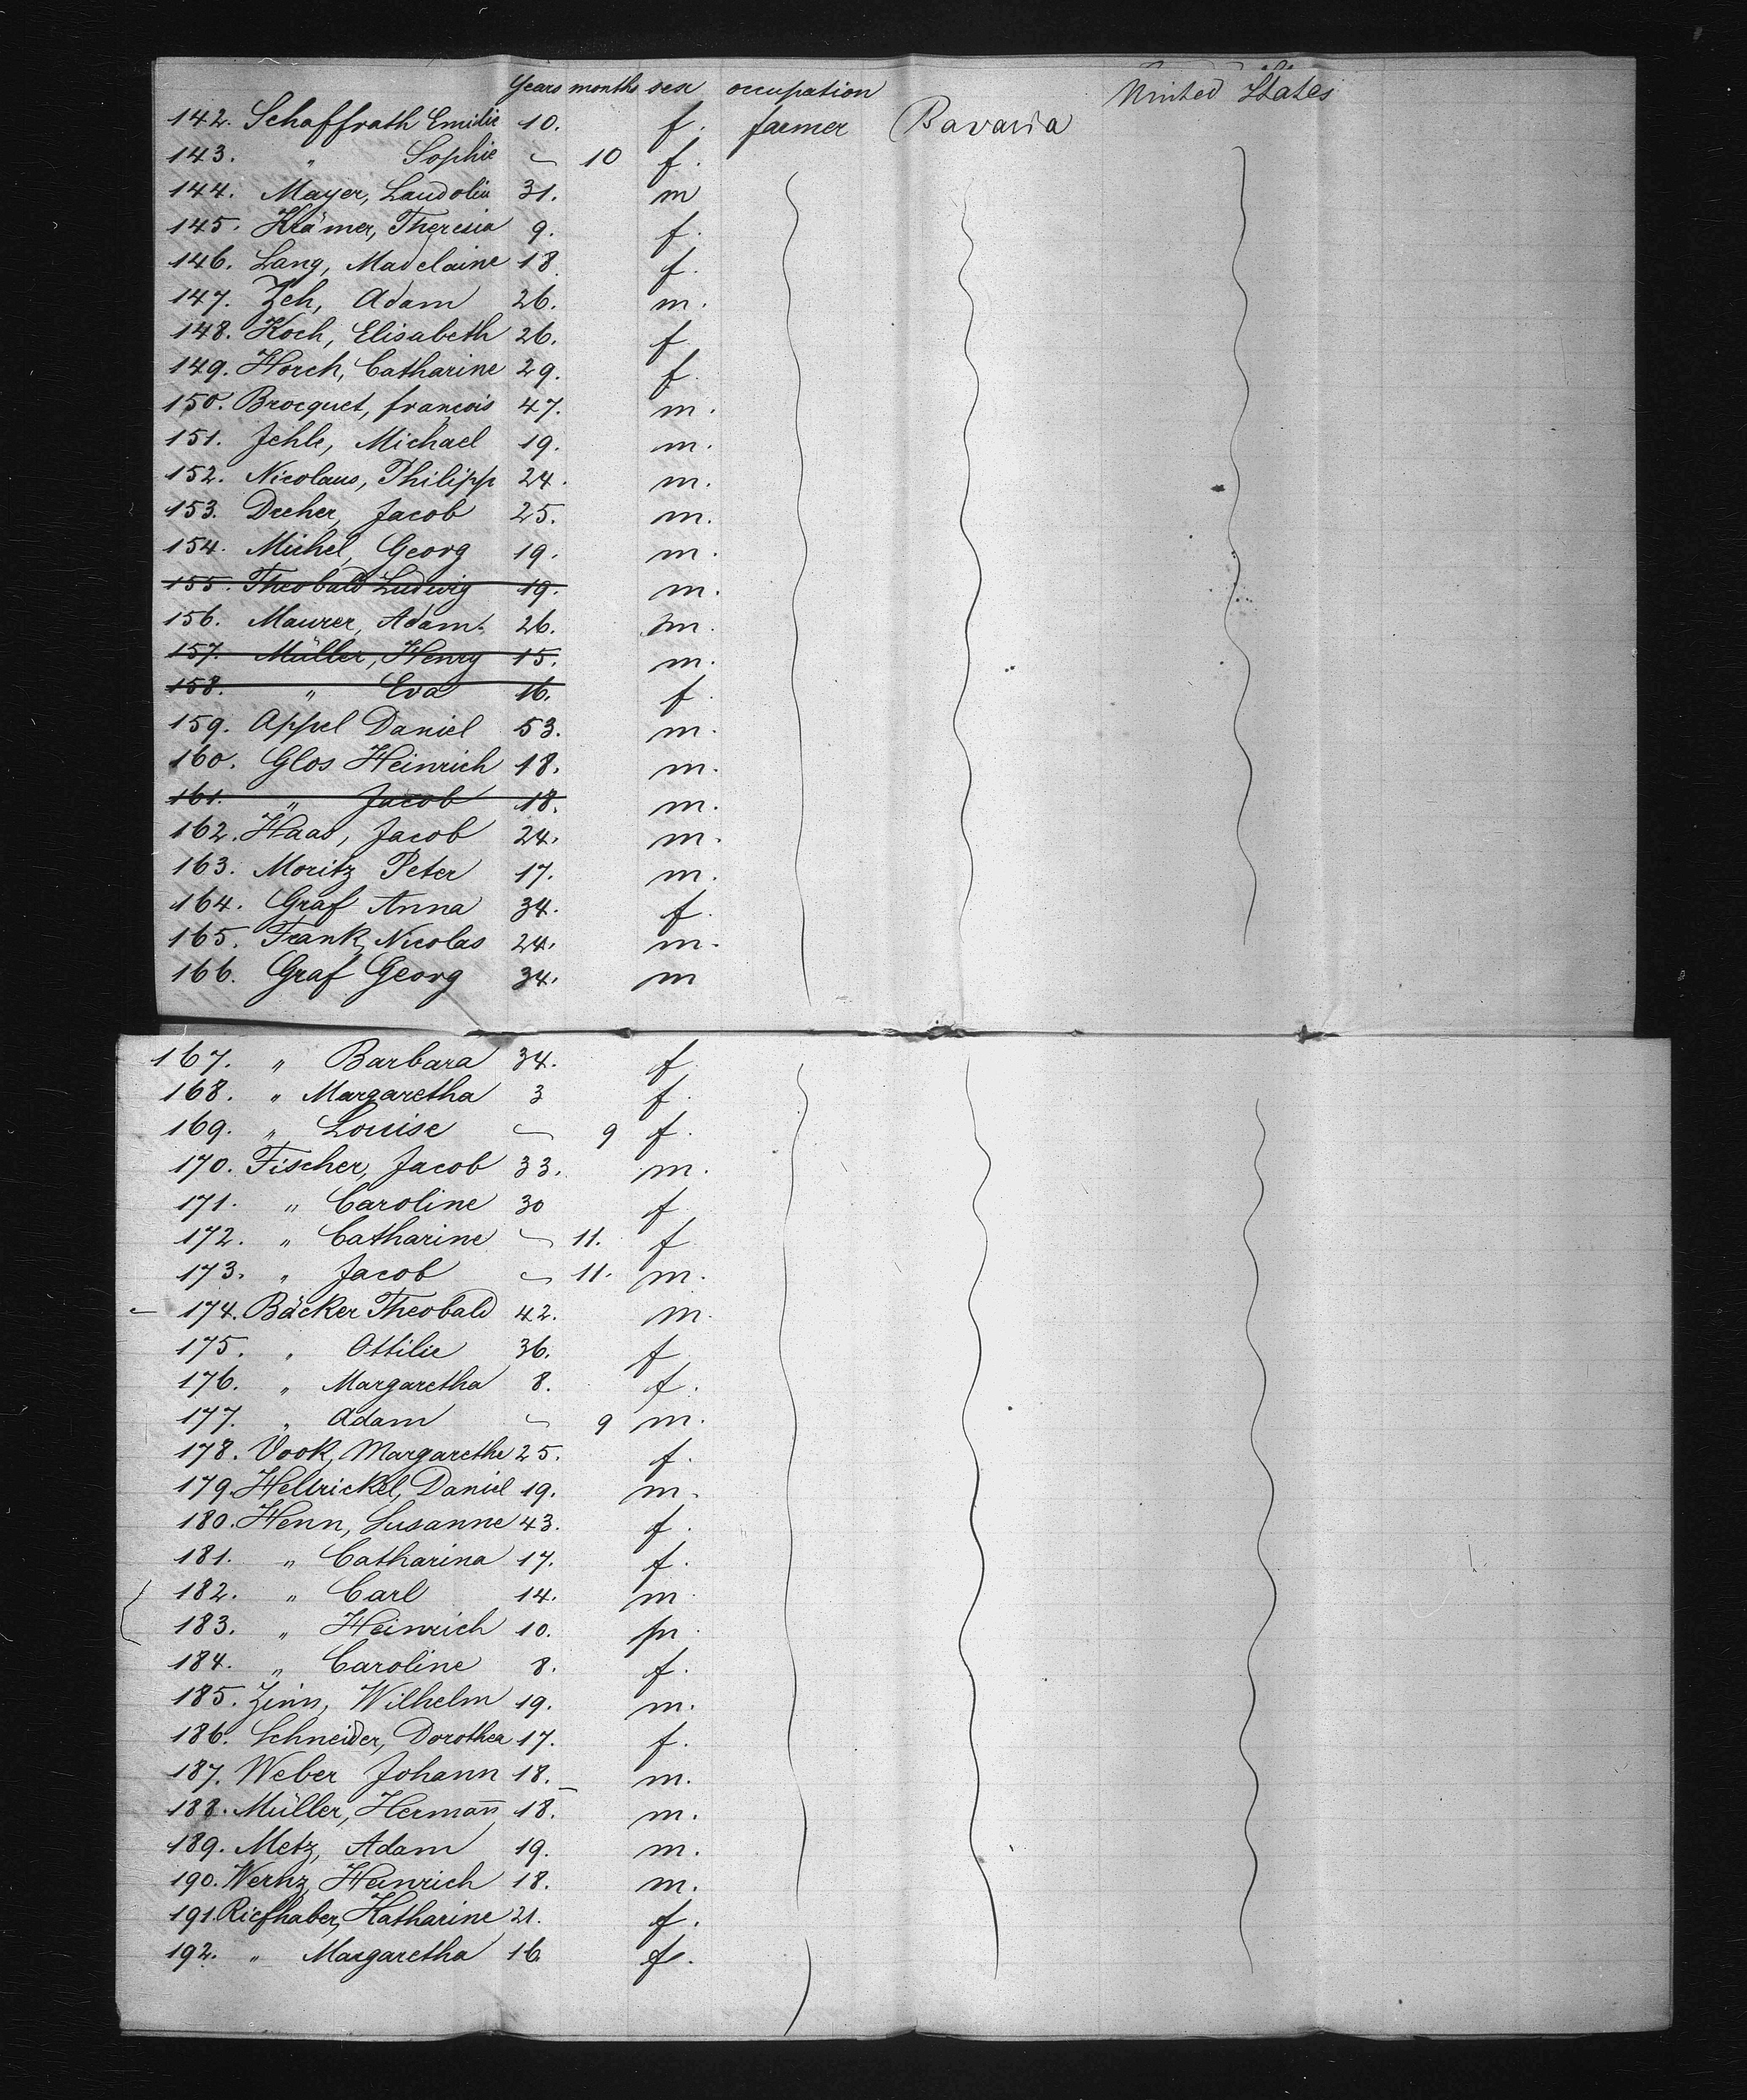 Years months sex occupation United States
142. Schaffrath Emilie 10. f. farmer Bavaria
143. " Sophie - 10 f.
144. Mayer, Landolin 31. m
145. Krämer, Theresia 9. f.
146. Lang, Madelaine 18 f.
147. Zeh, Adam 26. m.
148. Koch, Elisabeth 26. f.
149. Horch, Catharine 29. f.
150. Brocquet, françois 47. m.
151. Jehle, Michael 19. m.
152. Nicolaus, Philipp 24. m.
153. Dreher, Jacob 25. m.
154. Michel, Georg 19. m.
155. Theobald Ludwig 19. m.
156. Maurer, Adam. 26. m.
157. Müller, Henry 15. m.
158. " Eva 16. f.
159. Appel Daniel 53. m.
160. Glos Heinrich 18. m.
161. " Jacob 18. m.
162. Haas, Jacob 24. m.
163. Moritz Peter 17. m.
164. Graf Anna 34. f.
165. Frank, Nicolas 24. m.
166. Graf Georg 34. m
167. " Barbara 34. f.
168. " Margaretha 3 f.
169. " Louise - 9 f.
170. Fischer, Jacob 33. m.
171. " Caroline 30 f.
172. " Catharine - 11. f
173. " Jacob - 11. m.
- 174. Bäcker Theobald 42. m.
175. " Ottilie 36. f
176. " Margaretha 8. f.
177. " Adam - 9 m.
178. Vook, Margarethe 25. f.
179. Hellrickel, Daniel 19. m.
180. Henn, Susanne 43. f.
181. " Catharina 17. f.
182. " Carl 14. m
183. " Heinrich 10. m
184. " Caroline 8. f.
185. Zinn, Wilhelm 19. m.
186. Schneider, Dorothea 17. f.
187. Weber Johann 18. m.
188. Müller, Hermañ 18. m.
189. Metz, Adam 19. m.
190. Wernz, Heinrich 18. m.
191. Riefhaber, Katharine 21. f.
192. " Margaretha 16 f.